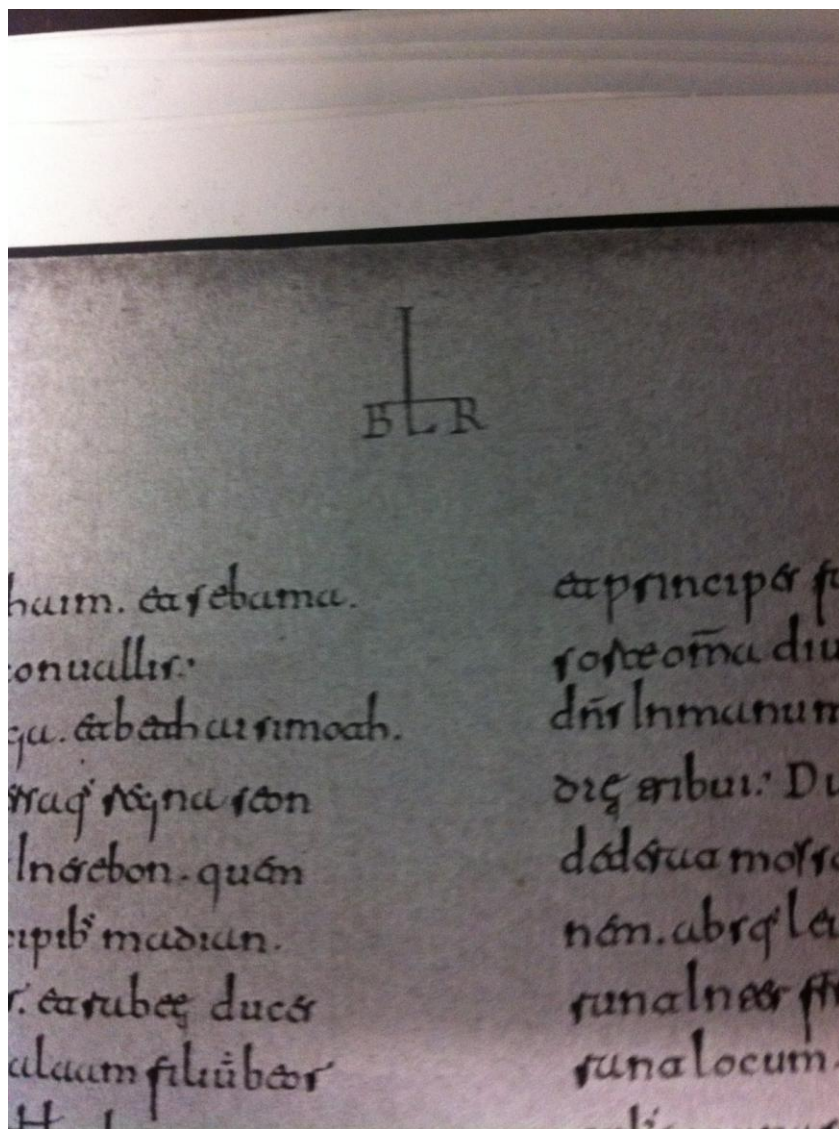 I
B L R
haim. et sebama.
onuallis:
ga. et bethaisimoth.
regna seon
In esebon. quem
cipib' madian.
r. et rubeę duces
alaam filiū beor
et principes f
sorte om̄a diu
dn̄s In manum
tribui: Du
dederat moys
nem. absq' le
sunt In
sunt locum.